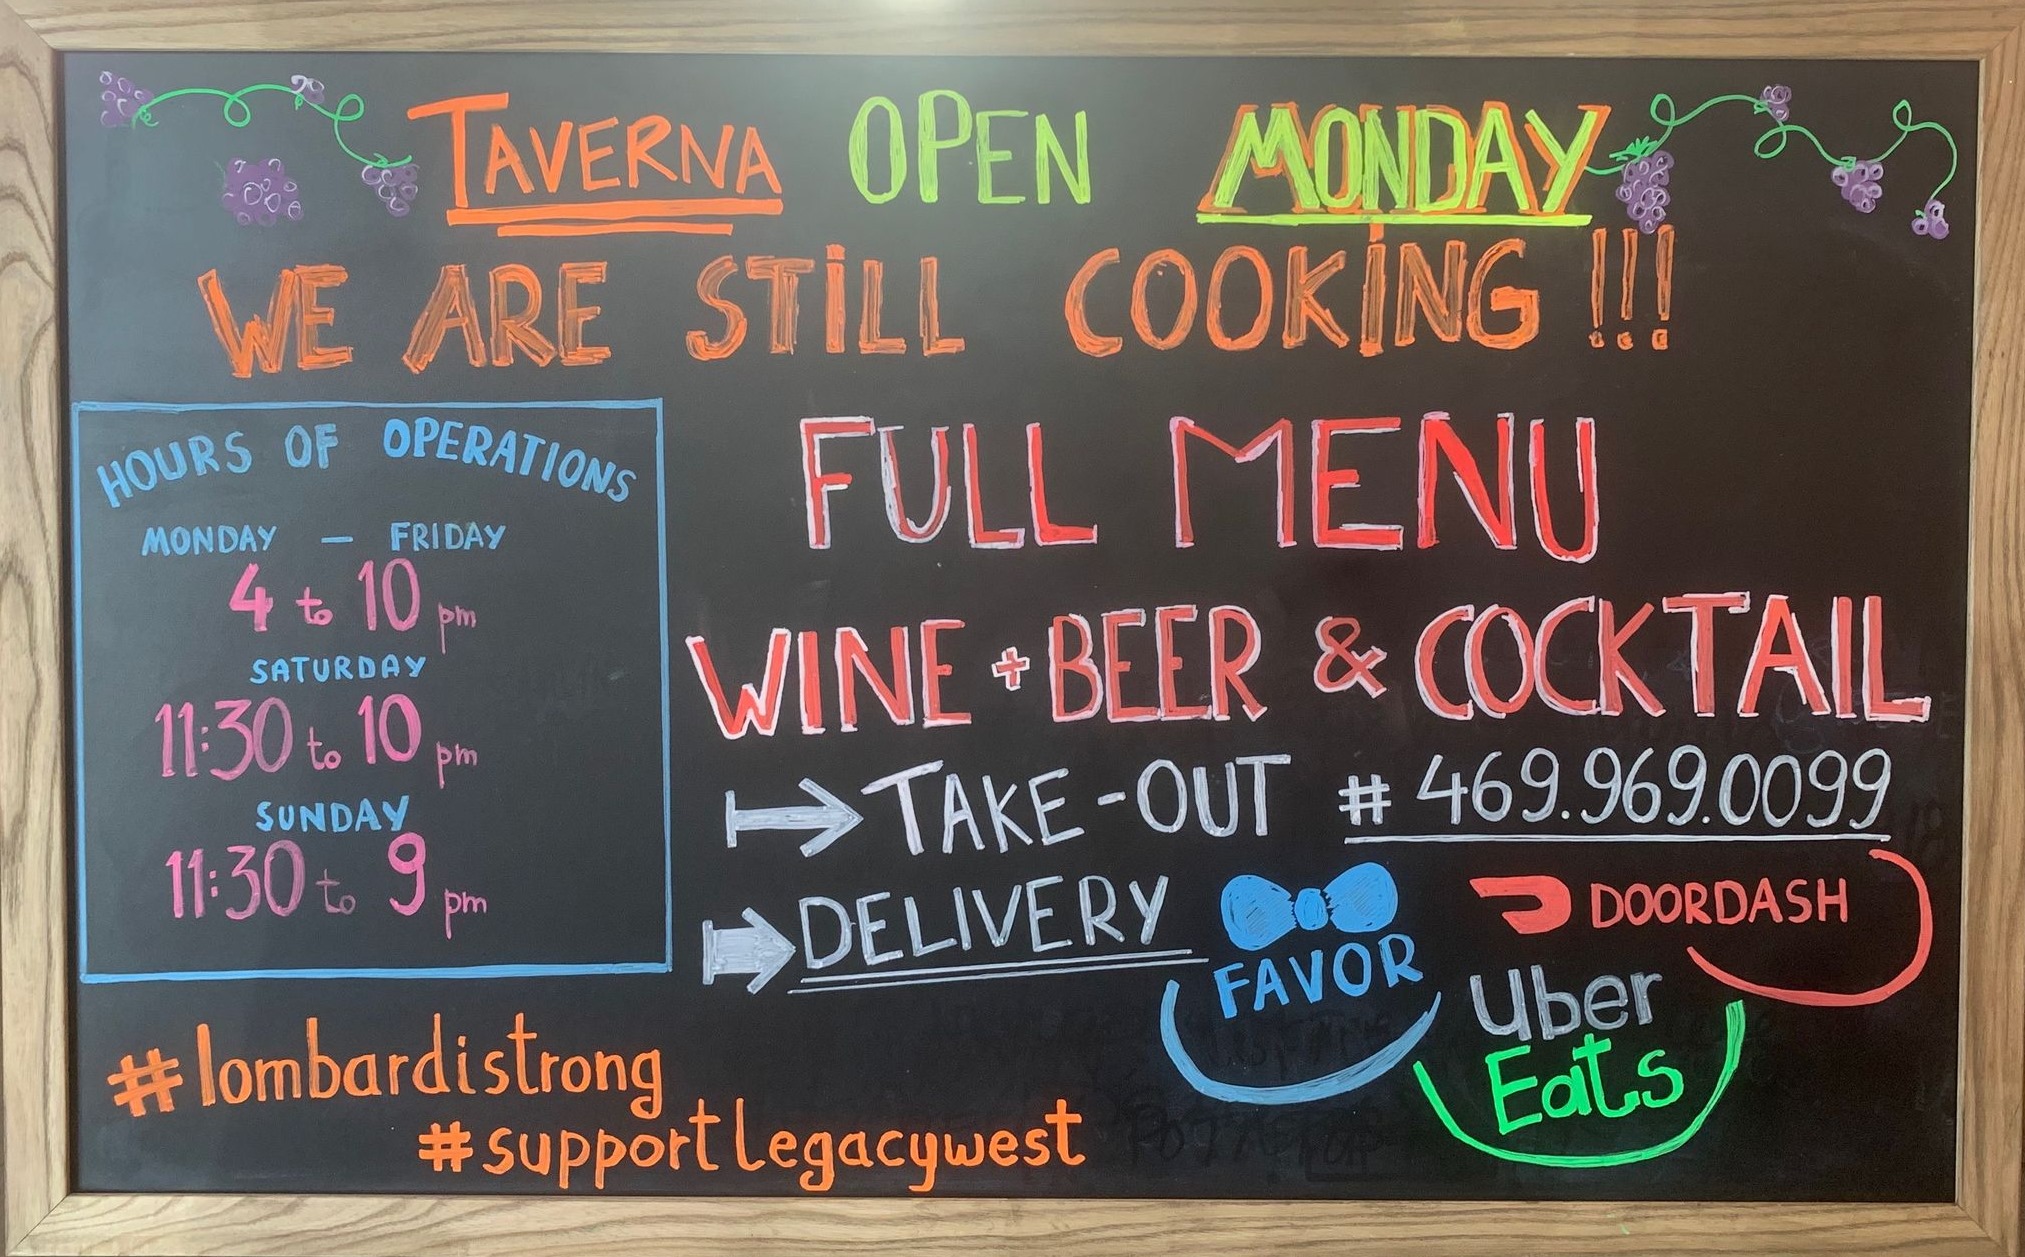 TAVERNA OPEN MONDAY
WE ARE STILL COOKING !!!
HOURS OF OPERATIONS
MONDAY - FRIDAY
4 to 10 pm
SATURDAY
11:30 to 10 pm
SUNDAY
11:30 to 9 pm
FULL MENU
WINE + BEER & COCKTAIL
TAKE-OUT # 469.969.0099
DELIVERY
FAVOR
DOORDASH
Uber
Eats
#lombardistrong
#supportlegacywest